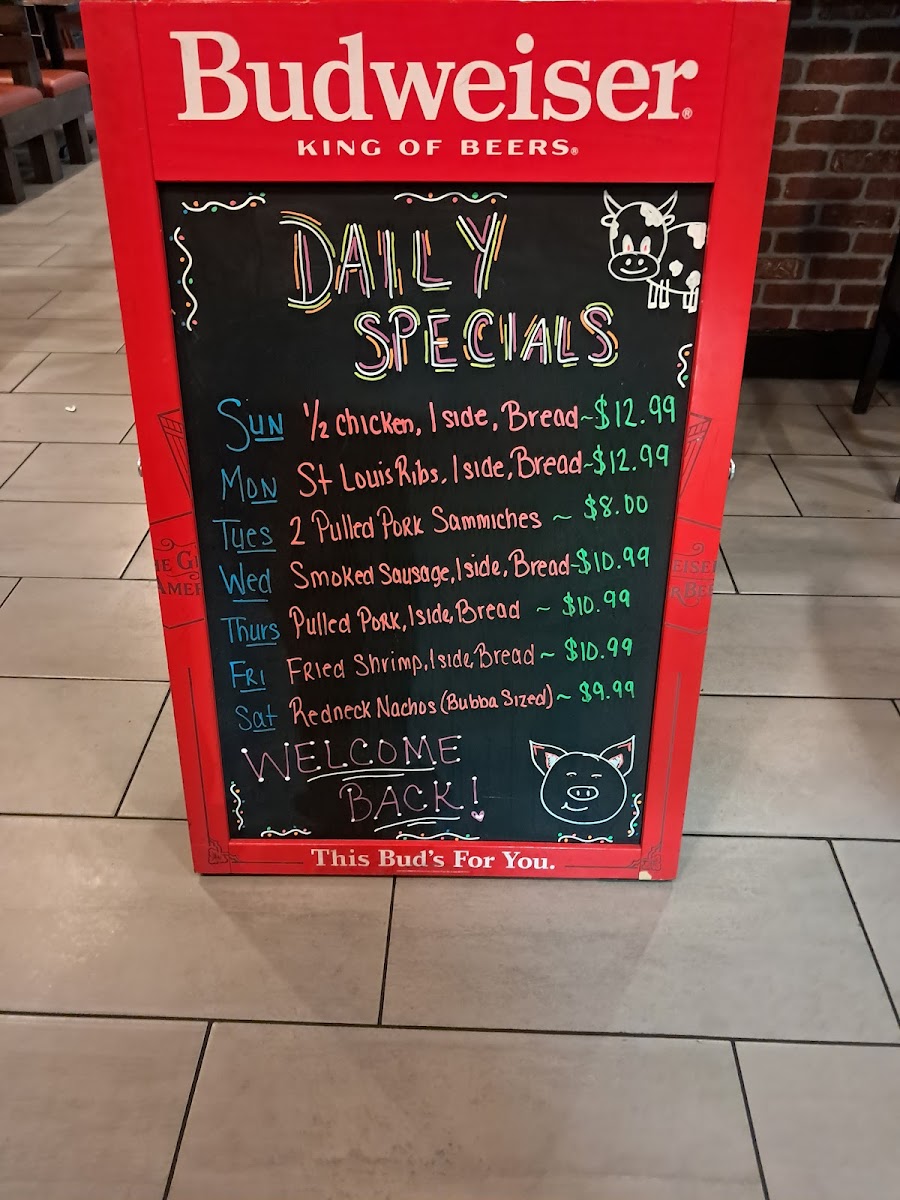 Budweiser®
KING OF BEERS®
DAILY
SPECIALS
SUN ½ chicken, 1 side, Bread ~ $12.99
MON St Louis Ribs, 1 side, Bread ~ $12.99
Tues 2 Pulled Pork Sammiches ~ $8.00
Wed Smoked Sausage, 1 side, Bread ~ $10.99
Thurs Pulled Pork, 1 side, Bread ~ $10.99
FRI FRied Shrimp, 1 side, Bread ~ $10.99
Sat Redneck Nachos (Bubba Sized) ~ $9.99
WELCOME
BACK!
This Bud's For You.